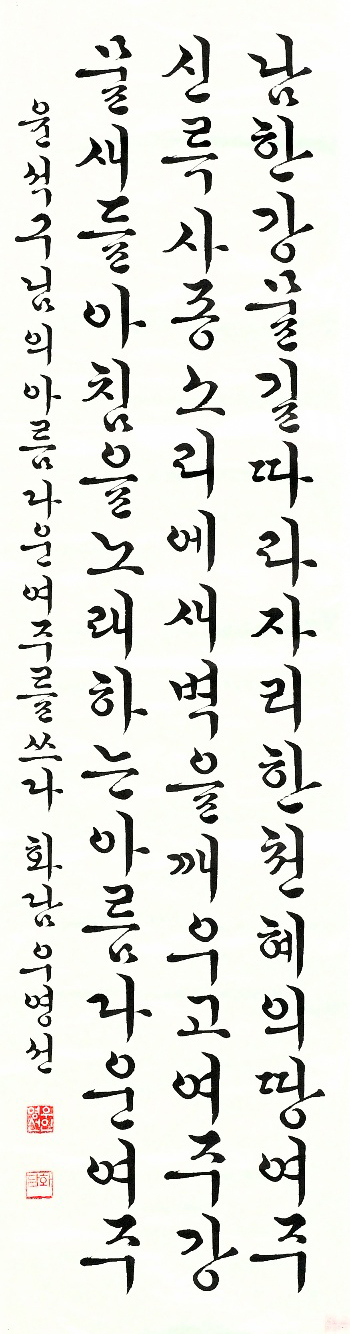 남한강물길따라자리한천혜의땅여주
신륵사종소리에새벽을깨우고여주강
물새들아침을노래하는아름다운여주
윤석구님의아름다운여주를쓰다 화남우영선